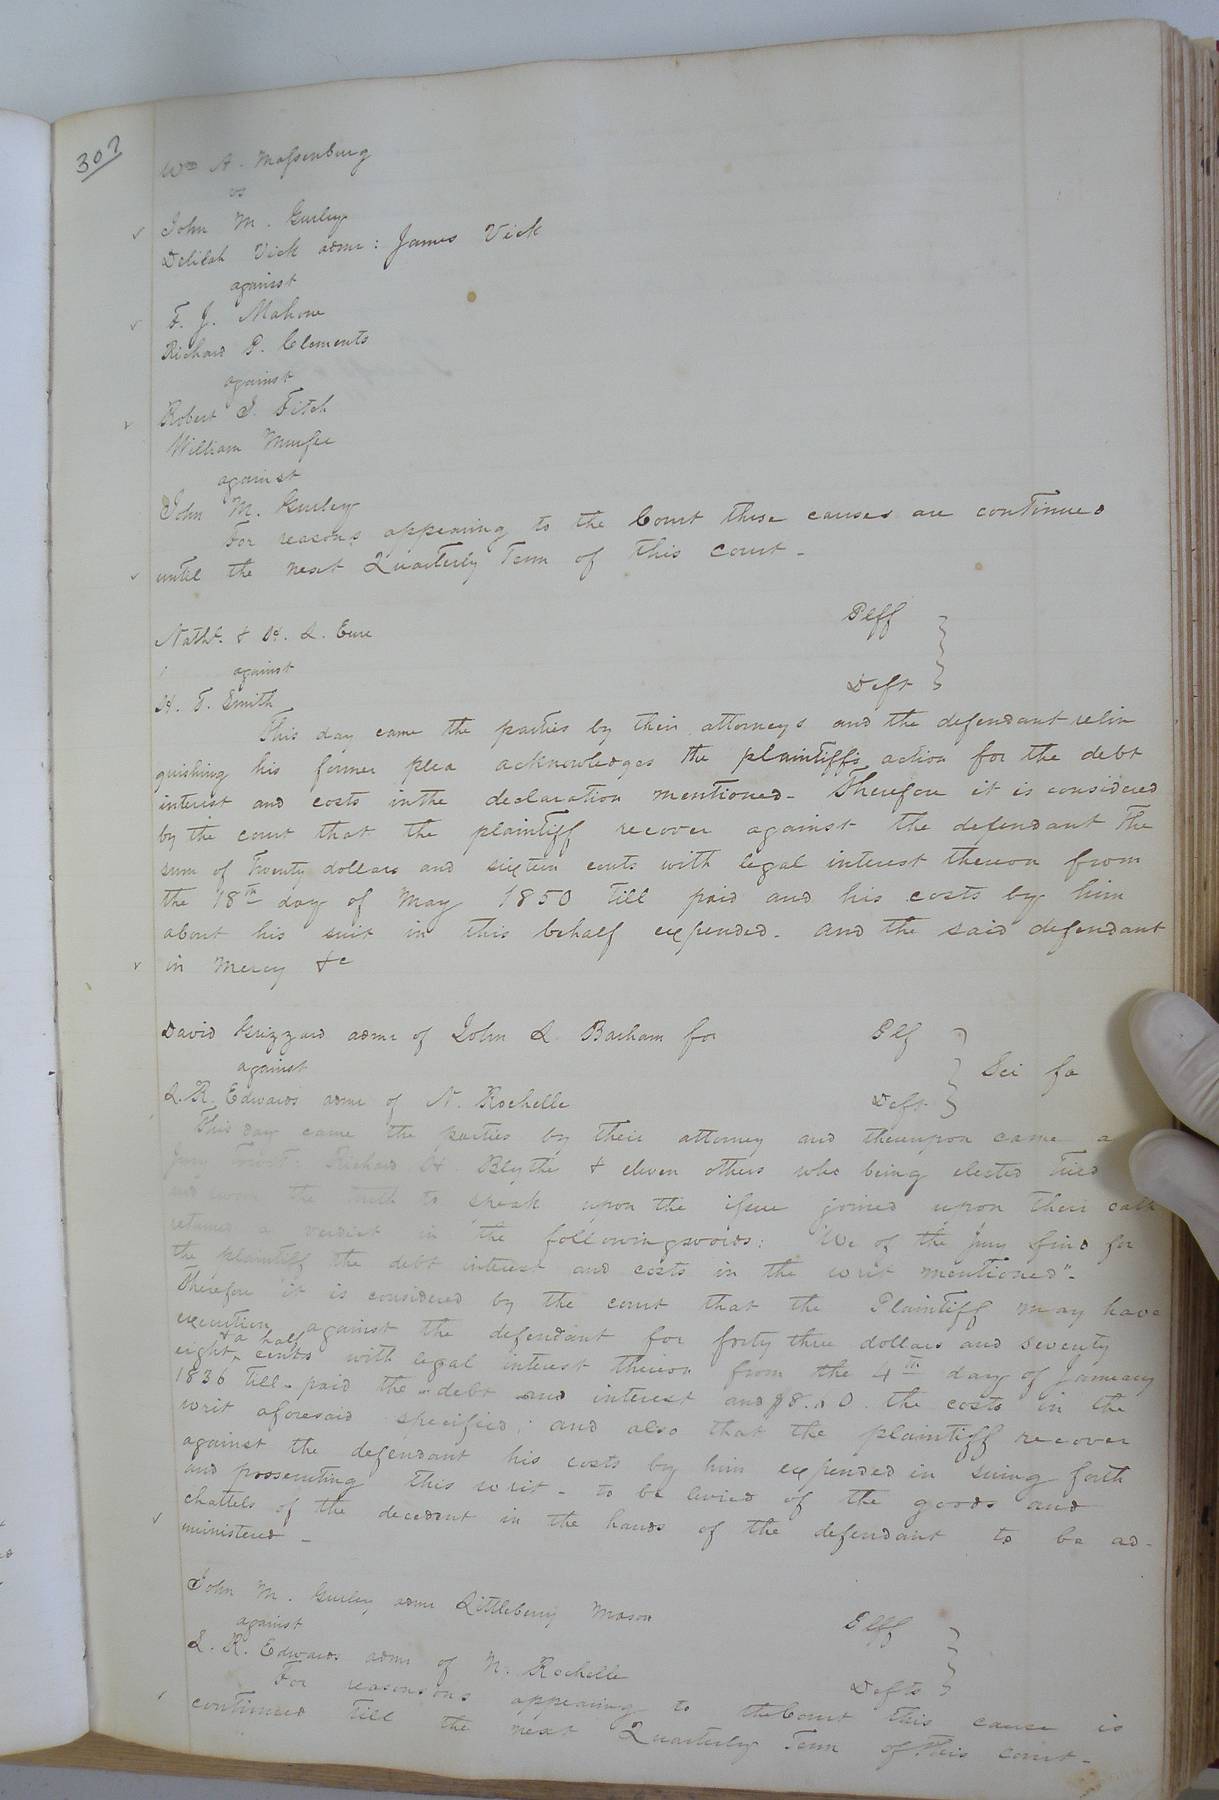 307
Wm A. Massenburg
vs
John M. Gurley
Delilah Vick admr: James Vick
against
F. J. Mahone
Richard P. Clements
against
Robert S. Fitch
William Murfee
against
John M. Gurley
For reasons appearing to the Court these causes are continued
until the next Quarterly Term of this court -
Nathl. & H. L. Eure Plff
against
H. T. Smith Deft
This day came the parties by their attorneys and the defendant relin
quishing his former plea acknowledges the plaintiffs action for the debt
interest and costs in the declaration mentioned - Therefore it is considered
by the court that the plaintiff recover against the defendant the
sum of Twenty dollars and sixteen cents with legal interest thereon from
the 18th day of May 1850 till paid and his costs by him
about his suit in this behalf expended - and the said defendant
in mercy &c
David Grizzard admr of John L. Barham for Plf
against Sci fa
L. R. Edwards admr of N. Rochelle Deft
This day came the parties by their attorney and thereupon came a
Jury Towit: Richard H. Blythe & eleven others who being elected tried
and sworn the truth to speak upon the issue joined upon their oath
returned a verdict in the following words: "We of the Jury find for
the plaintiff the debt interest and costs in the writ mentioned" -
Therefore it is considered by the court that the Plaintiff may have
execution against the defendant for forty three dollars and seventy
eight & a half cents with legal interest thereon from the 4th day of January
1836 till paid the debt and interest and the costs in the
writ aforesaid specified; and also that the plaintiff recover
against the defendant his costs by him expended in suing forth
and prosecuting this writ - to be levied of the goods and
chattels of the decedent in the hands of the defendant to be ad-
ministered -
John M. Gurley admr Littleberry Mason Plff
against
L. R. Edwards admr of N. Rochelle Defts
For reasons ons appearing to the Court this cause is
continued till the next Quarterly Term of this court -